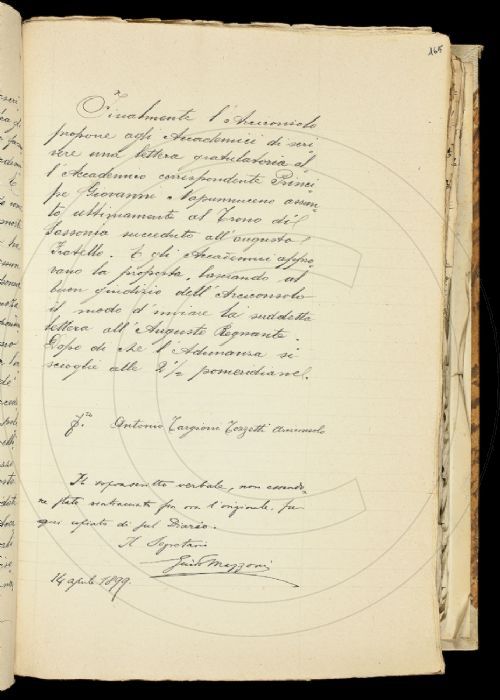 165
Finalmente l'Arciconsolo
propone agli Accademici di scri
vere una lettera gratulatoria al
l'Accademico corrispondente Princi
pe Giovanni Nepumuceno assun
to ultimamente al Trono di
Sassonia succeduto all'augusto
Fratello. E gli Accademici appro
vano la proposta, lasciando al
buon giudizio dell'Arciconsolo
il modo d'inviare la suddetta
lettera all'Augusto Regnante.
Dopo di che l'Adunanza si
scioglie alle 2 1/2 pomeridiane.
F.to Antonio Targioni Tozzetti Arciconsolo
Il soprascritto verbale, non essendo
ne stato rintracciato fin ora l'originale, fu
qui copiato di sul Diario.
Il Segretario
Guido Mazzoni
14 aprile 1899.